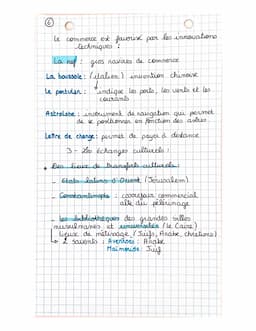 6
Le commerce est favorisé par les innovations
techniques :
La nef : gros navires de commerce
La boussole : (italien) invention chinoise
Le portulan : indique les ports, les vents et les
courants
Astrolabe : instrument de navigation qui permet
de se positionner en fonction des astres
Lettre de change : permet de payer à distance
3 - Les échanges culturels :
Des lieux de transferts culturels :
- Etats latins d'Orient (Jérusalem)
- Constantinople : carrefour commercial
allié du pèlerinage
- Les bibliothèques des grandes villes
musulmanes et (le Caire)
lieux de métissage (Juifs, Arabe, chrétiens)
↳ 2 savants : Averroès : Arabe
Maïmonide : Juif